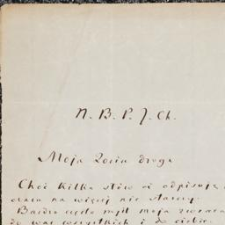 N. B. P. J. Ch.
Moja Zosiu droga
Choć kilka słów ci odpisuję
czasu na więcej nie starczy.
Bardzo często myśl moja zwraca
do was wszystkich i do ciebie